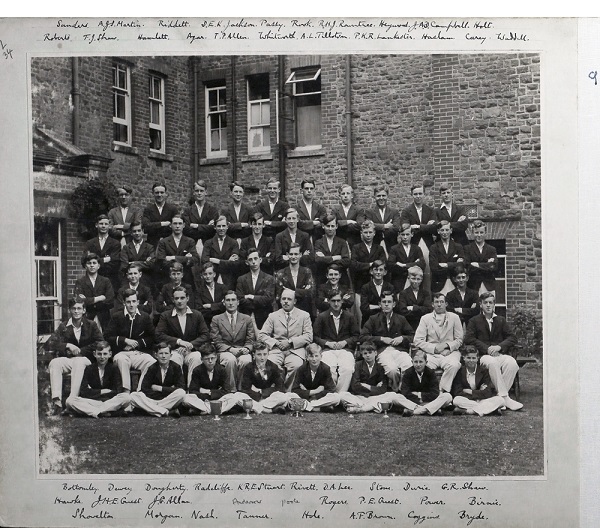 Saunders A.J.S. Martin. Riddett. D.E.K. Jackson. Pally. Rook. R.H.J. Rowntree. Heywood. J.A.D. Campbell. Holt.
Roberts. T.J. Shaw. Hamlett. Agar. T.P. Allen. Whitworth. A.L. Tillotson. P.K.R. Lankester. Haslam. Carey. Waddell.
Bottomley. Dewey. Dougherty. Radcliffe. K.R.E. Stuart. Rivett. D.A. Lee. Stone. Durie. G.R. Shaw.
Hawke J.H.E. Guest J.G. Allan. Rogers. P.E. Guest. Power. Birnie.
Shovelton Morgan. Nash. Tanner. Hole. A.P. Brown. Coggins Bryde.